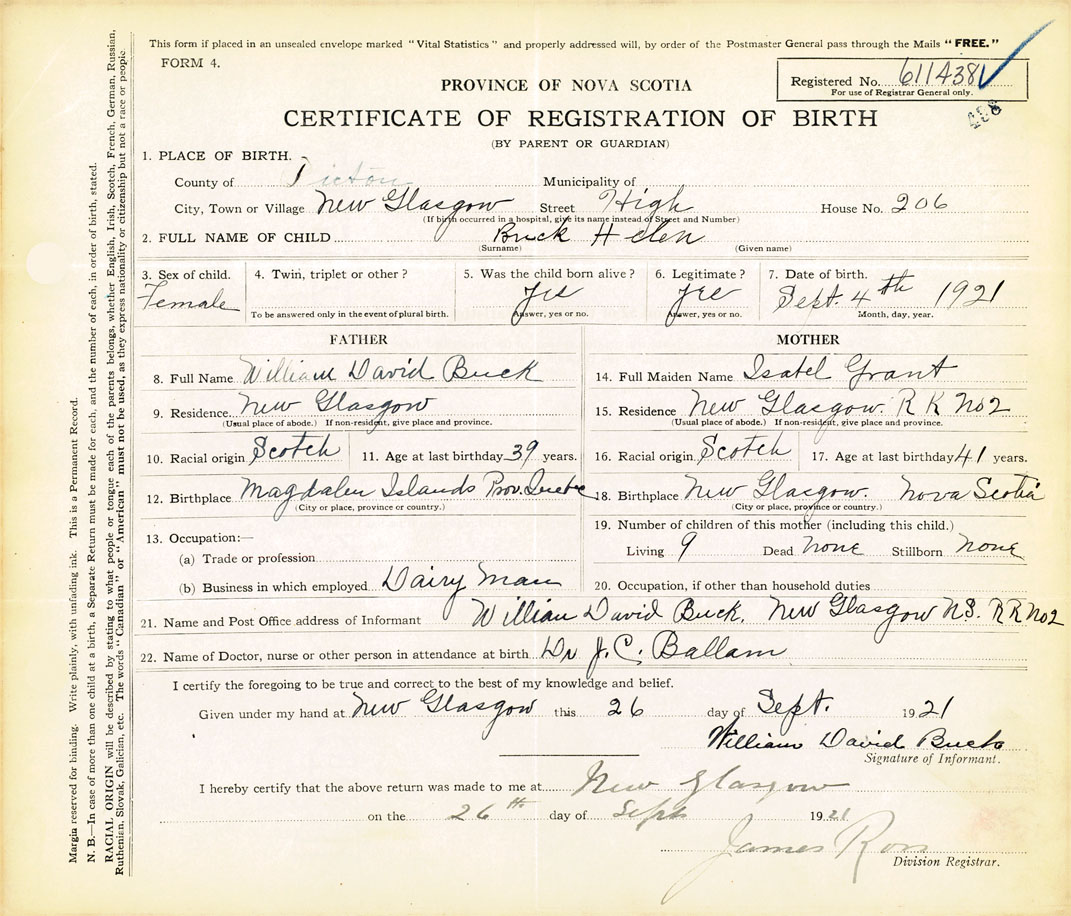 This form if placed in an unsealed envelope marked "Vital Statistics" and properly addressed will, by order of the Postmaster General pass through the Mails "FREE."
FORM 4.
Registered No. 6114381
For use of Registrar General only.
PROVINCE OF NOVA SCOTIA
CERTIFICATE OF REGISTRATION OF BIRTH
(BY PARENT OR GUARDIAN)
1. PLACE OF BIRTH.
County of Pictou Municipality of
City, Town or Village New Glasgow Street High House No. 206
(If birth occurred in a hospital, give its name instead of Street and Number)
2. FULL NAME OF CHILD Buck Helen
(Surname) (Given name)
3. Sex of child. 4. Twin, triplet or other? 5. Was the child born alive? 6. Legitimate? 7. Date of birth.
Female yes yes Sept. 4th 1921
To be answered only in the event of plural birth. Answer, yes or no. Answer, yes or no. Month, day, year.
FATHER MOTHER
8. Full Name William David Buck 14. Full Maiden Name Isabel Grant
9. Residence New Glasgow 15. Residence New Glasgow. R R No2
(Usual place of abode.) If non-resident, give place and province. (Usual place of abode.) If non-resident, give place and province.
10. Racial origin Scotch 11. Age at last birthday 39 years. 16. Racial origin Scotch 17. Age at last birthday 41 years.
12. Birthplace Magdalen Islands Prov. Quebec 18. Birthplace New Glasgow. Nova Scotia
(City or place, province or country.) (City or place, province or country.)
13. Occupation:— 19. Number of children of this mother (including this child.)
(a) Trade or profession Living 9 Dead none Stillborn none
(b) Business in which employed Dairy Man 20. Occupation, if other than household duties
21. Name and Post Office address of Informant William David Buck, New Glasgow N.S. RR No2
22. Name of Doctor, nurse or other person in attendance at birth Dr J. C. Ballam
I certify the foregoing to be true and correct to the best of my knowledge and belief.
Given under my hand at New Glasgow this 26 day of Sept. 1921
William David Buck
Signature of Informant.
I hereby certify that the above return was made to me at New Glasgow
on the 26th day of Sept 1921
James Ross
Division Registrar.
Margin reserved for binding. Write plainly, with unfading ink. This is a Permanent Record.
N. B.—In case of more than one child at a birth, a Separate Return must be made for each, and the number of each, in order of birth, stated.
RACIAL ORIGIN will be described by stating to what people or tongue each of the parents belongs, whether English, Irish, Scotch, French, German, Russian,
Ruthenian, Slovak, Galician, etc. The words "Canadian" or "American" must not be used, as they express nationality or citizenship but not a race or people